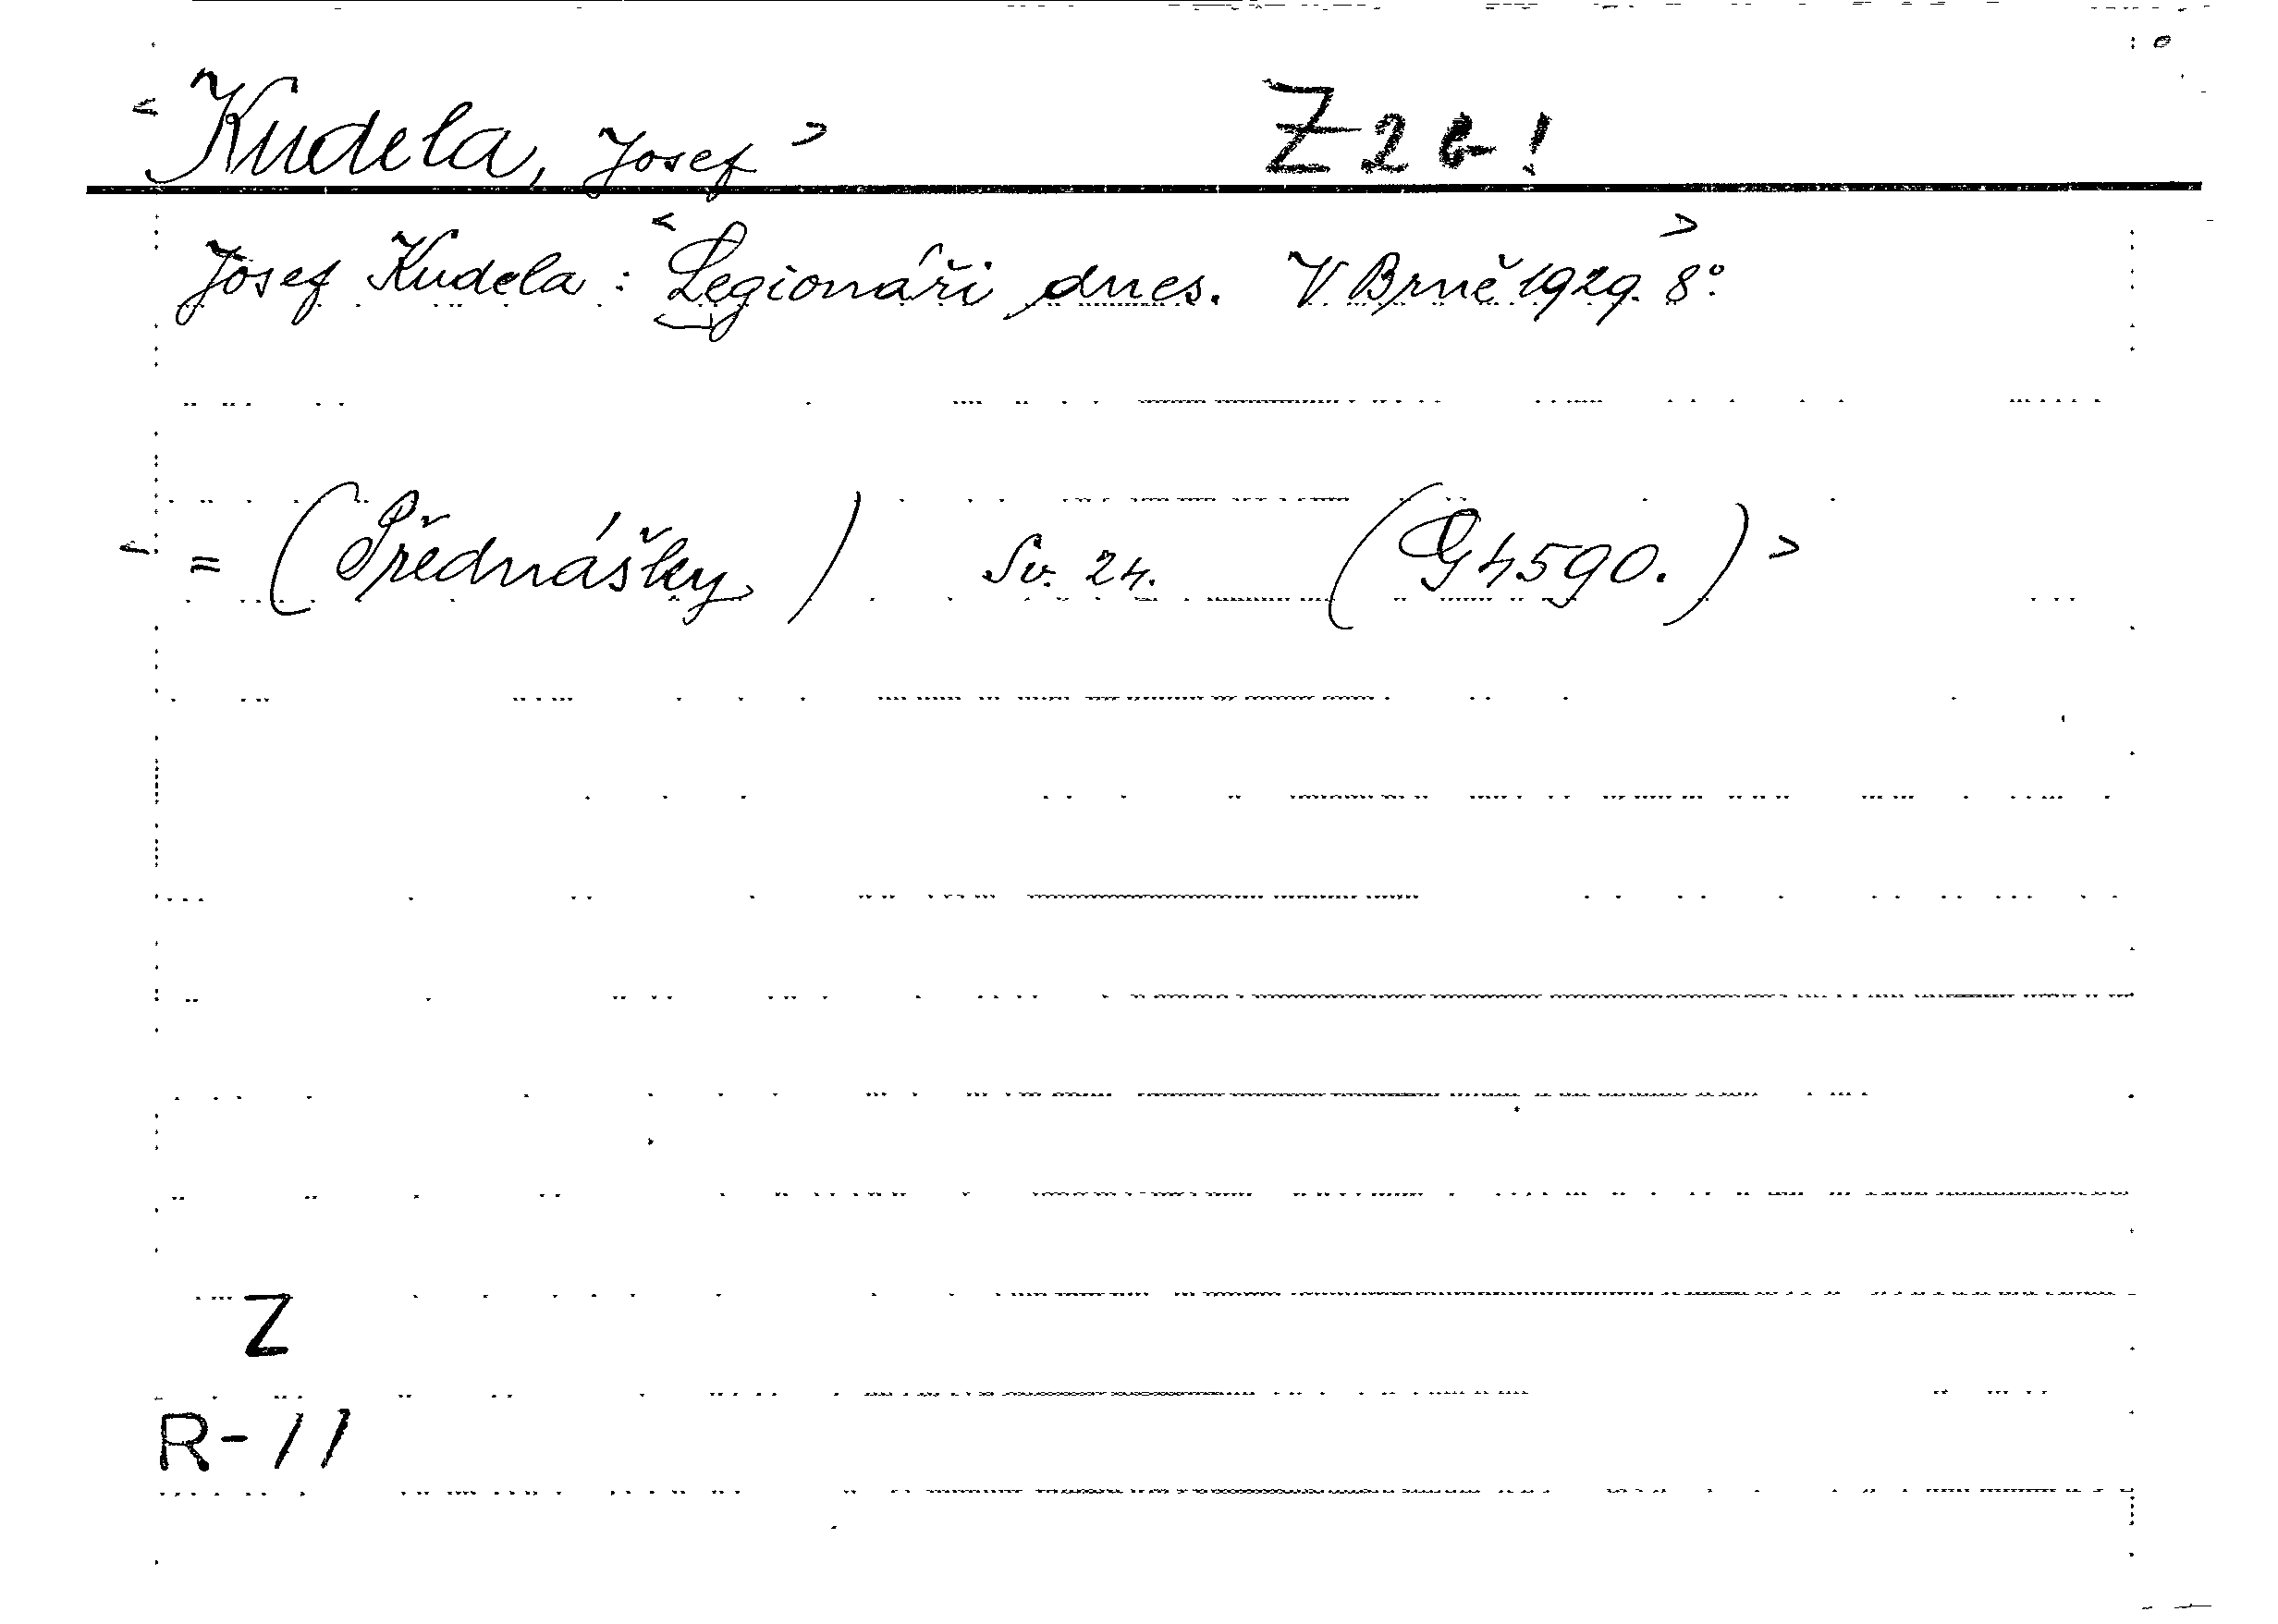 < Kudela, Josef > Z 2 b !
Josef Kudela : < Legionáři dnes. V Brně 1929. 8°. >
< = (Přednášky) Sv. 24. (G 4590.) >
Z
R-11